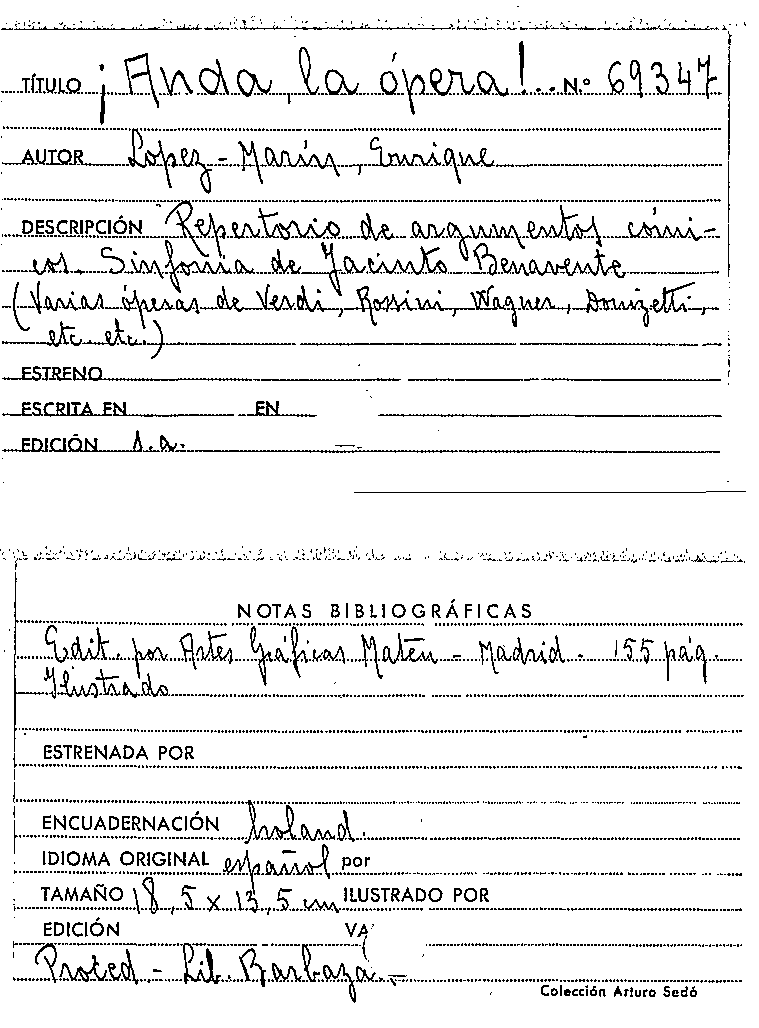 TÍTULO ¡Anda, la ópera!.. N.º 69347
AUTOR López-Marín, Enrique
DESCRIPCIÓN Repertorio de argumentos cómi-
cos. Sinfonía de Jacinto Benavente
(Varias óperas de Verdi, Rossini, Wagner, Donizetti,
etc. etc.)
ESTRENO
ESCRITA EN EN
EDICIÓN s.a. —.
NOTAS BIBLIOGRÁFICAS
Edit. por Artes Gráficas Mateu - Madrid. 155 pág.
Ilustrado
ESTRENADA POR
ENCUADERNACIÓN holand.
IDIOMA ORIGINAL español por
TAMAÑO 18,5 x 13,5 cm ILUSTRADO POR
EDICIÓN VA
Proced - Lib. Barbazá.-
Colección Arturo Sedó